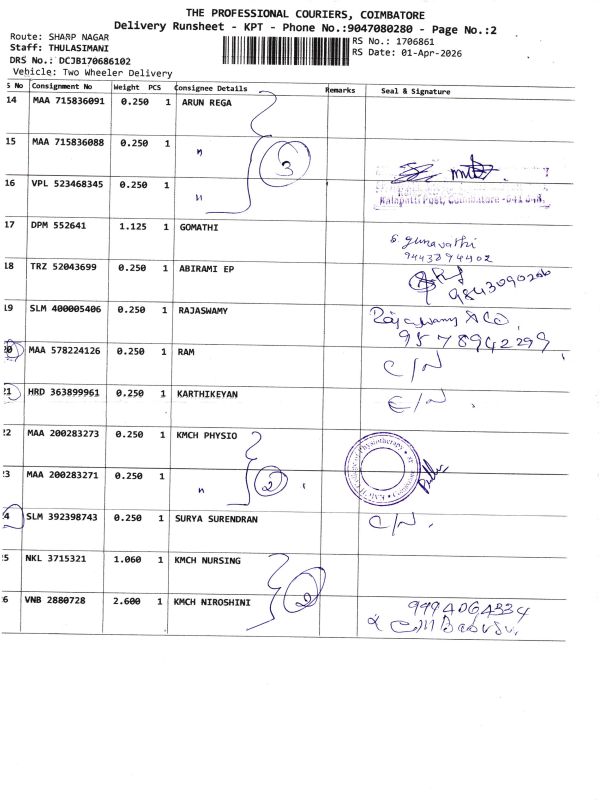 THE PROFESSIONAL COURIERS, COIMBATORE
Delivery Runsheet - KPT - Phone No.:9047080280 - Page No.:2
Route: SHARP NAGAR
RS No.: 1706861
Staff: THULASIMANI
RS Date: 01-Apr-2026
DRS No.: DCJB170686102
Vehicle: Two Wheeler Delivery
S No Consignment No Weight PCS Consignee Details Remarks Seal & Signature
14 MAA 715836091 0.250 1 ARUN REGA
15 MAA 715836088 0.250 1 "
3
16 VPL 523468345 0.250 1 "
Kalapatti Post, Coimbatore - 641 048.
17 DPM 552641 1.125 1 GOMATHI
S. gunavathi
9443894402
18 TRZ 52043699 0.250 1 ABIRAMI EP
9843090206
19 SLM 400005406 0.250 1 RAJASWAMY
Rajaswamy
9578942299
20 MAA 578224126 0.250 1 RAM C/N
21 HRD 363899961 0.250 1 KARTHIKEYAN C/N
22 MAA 200283273 0.250 1 KMCH PHYSIO
23 MAA 200283271 0.250 1 "
2
KMCH College of Physiotherapy
24 SLM 392398743 0.250 1 SURYA SURENDRAN C/N.
25 NKL 3715321 1.060 1 KMCH NURSING
2
26 VNB 2880728 2.600 1 KMCH NIROSHINI